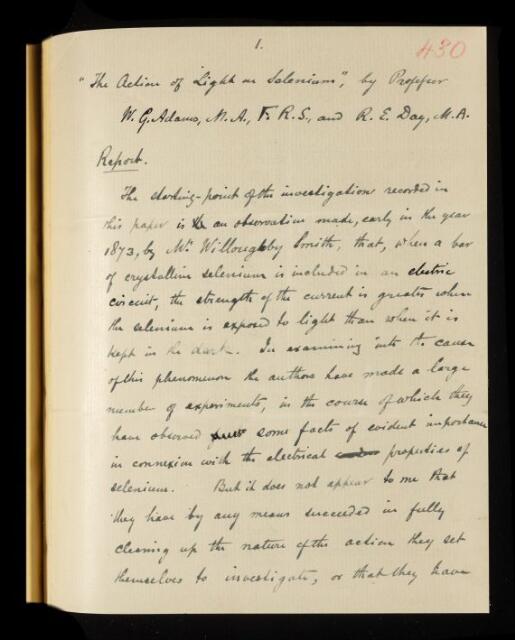 1.
430
"The Action of Light on Selenium", by Professor
W. G. Adams, M.A., F.R.S., and R. E. Day, M.A.
Report.
The starting-point of the investigations recorded in
this paper is an observation made, early in the year
1873, by Mr. Willoughby Smith, that, when a bar
of crystalline selenium is included in an electric
circuit, the strength of the current is greater when
the selenium is exposed to light than when it is
kept in the dark. In examining into the cause
of this phenomenon the authors have made a large
number of experiments, in the course of which they
have observed some facts of evident importance
in connexion with the electrical properties of
selenium. But it does not appear to me that
they have by any means succeeded in fully
clearing up the nature of the action they set
themselves to investigate, or that they have